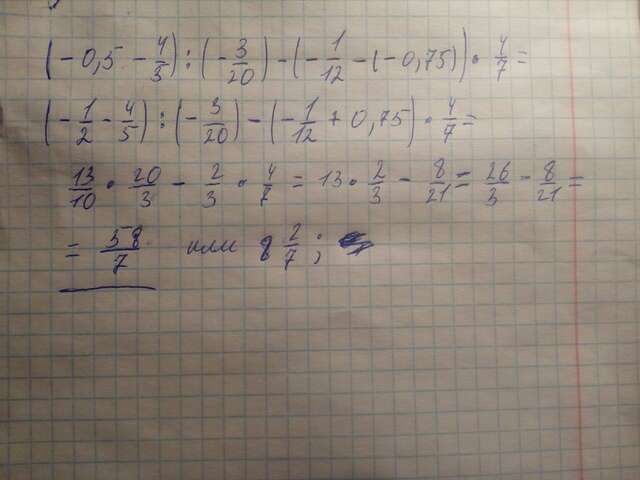 (-0,5 - 4/5) : (-3/20) - (-1/12 - (-0,75)) · 4/7 =
(-1/2 - 4/5) : (-3/20) - (-1/12 + 0,75) · 4/7 =
13/10 · 20/3 - 2/3 · 4/7 = 13 · 2/3 - 8/21 = 26/3 - 8/21 =
= 58/7 или 8 2/7 ;